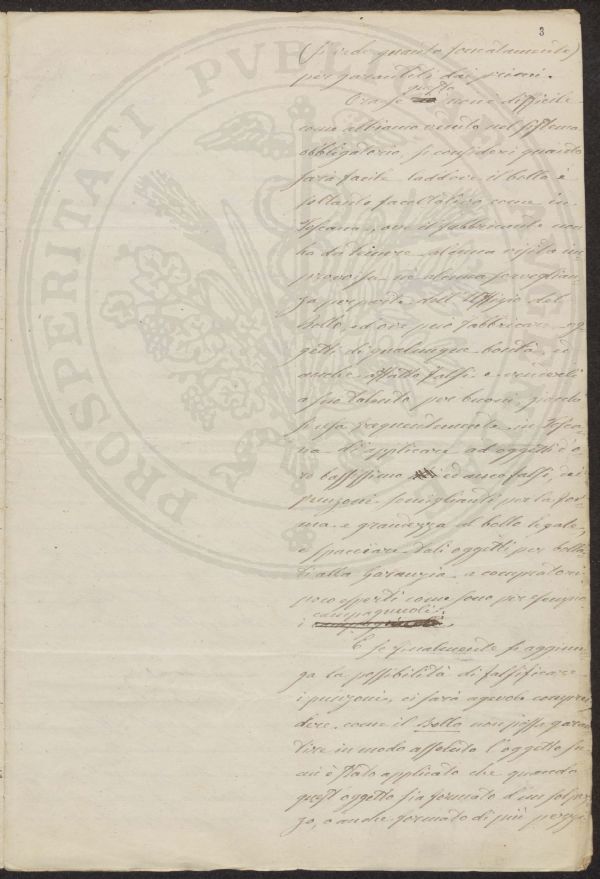 3
(si vede quanto forzatamente)
per garantirli dai primi.
Ora se questo non è difficile
come abbiamo veduto nel sistema
obbligatorio, si consideri quanto
sarà facile laddove il bollo è
soltanto facoltativo come in
Toscana, ove il fabbricante non
ha da temere alcuna visita im
provvisa nè alcuna sorveglian
za per parte dell'Uffizio del
Bollo, ed ove può fabbricare og
getti di qualunque bontà, ed
anche affatto falsi e venderli
a suo talento per buoni, giacchè
si usa frequentemente in Tosca
na di applicare ad oggetti d'o
ro bassissimo ed anco falsi, dei
punzoni somiglianti per la for
ma e grandezza al bollo legale,
e spacciare tali oggetti per bolla
ti alla Garanzia a compratori
poco esperti come sono per esempio
i campagnuoli.
E se finalmente si aggiun
ga la possibilità di falsificare
i punzoni, ci sarà agevole compren
dere come il Bollo non possa garan
tire in modo assoluto l'oggetto su
cui è stato applicato che quando
quest'oggetto sia formato d'un sol pez
zo, o anche formato di più pezzi
PROSPERITATI PUBLICAE